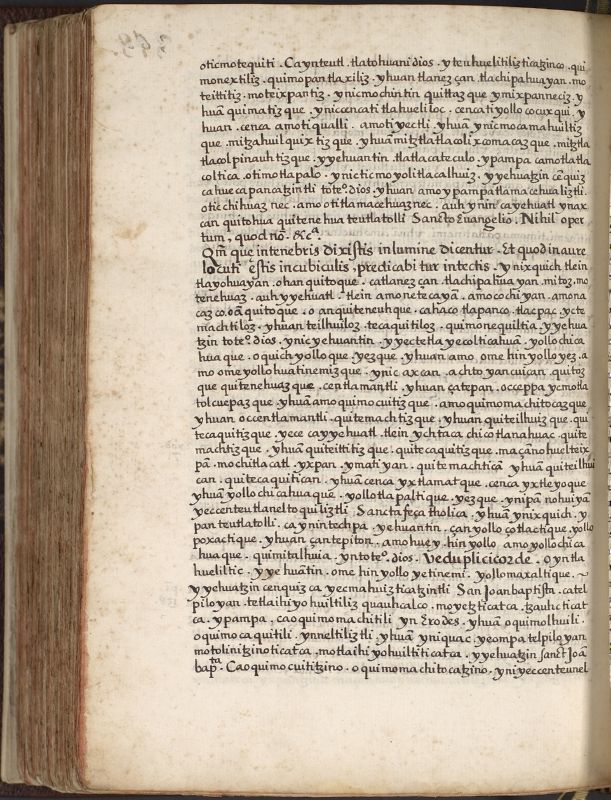 oticmotequiti . Ca yn teutl . tlatohuani dios . y tenhuelitilizticatzinco . qui
monextiliz . quimopantlaxiliz . yhuan tlanez çan . tlachipahuayan . mo
teittitiz . moteixpantiz . ynic mochintin quittaz que ymixpanneciz . y
huā quimatiz que . ynic cencati tlahueliloc . cencati yollo cocuxqui . y
huan . cenca amoti qualli . amoti yectli . yhuā ynic mocamahuiltiz
que . mitzahuilquixtiz que . yhuā mitztlatlacolixcomacaz que . mitztla
tlacolpinauhtiz que . y yehuantin . tlatlacateculo . y pampa camo tlatla
coltica . otimotlapalo . ynic ticmoyolitlacalhuiz . y yehuatzin cēquiz
cahuecapancatzintli toteo. dios . yhuan amo ypampa tlamacehualiztli .
otic chihuaz nec . amo otitlamacehuaznec . auh ynin ca yehuatl ynax
can quitohua quitenehua teutlatolli Sancto Euangelio . Nihil oper
tum , quod nō . &ca.
Qm̄ que in tenebris dixistis in lumine dicentur . Et quod in aure
locuti estis in cubiculis , predicabitur in tectis . ynixquich tlein
tlayohuayan . ohanquitoque . ca tlanez can . tlachipahuayan . mitoz . mo
tenehuaz . auh yyehuatl . tlein amonetecayā . amocochiyan . amona
cazco . oāquitoque . o anquiteneuhque . cahaco tlapanco . tlacpac . ycte
machtiloz . yhuan teilhuiloz . tecaquitiloz . quimonequiltia . yyehua
tzin toteo. dios . ynic yehuantin . yyectetla yecolticahuā . yollochica
huaque . oquichyolloque . yezque . yhuan amo . omehin yollo yez . a
mo ome yollohuatinemizque . ynic axcan . achto yancuican . quitoz
que quitenehuazque . centlamantli . yhuan çatepan . occeppa ycmotla
tolcuepazque . yhuā amo quimocuitizque . amo quimomachitocazque
yhuan occentlamantli . quitemachtizque , yhuan quiteilhuizque . qui
tecaquitizque . yece ca yyehuatl . tlein ychtaca chico tlanahuac . quite
machtizque . yhuā quiteittitizque . quitecaquitizque . maçano huelteix
pā . mochitlacatl . yxpan . ymatiyan . quitemachticā yhuā quiteilhui
can . quitecaquitican . yhuā cenca yxtlamatque . cenca yxtleyoque
yhuā yollochicahuaque . yollotlapaltique . yezque . ynipā nohuiyā
yecenteutlanelto quiliztli . Sancta feça tholica . yhuā ynixquich . y
pan teutlatolli . ca ynintechpa . yehuantin . çan yollo çotlactique , yollo
poxactique . yhuan çan tepiton . amohuey . hin yollo . amo yollochica
huaque . quimitalhuia . yn toteo. dios . Ve duplici corde . Oyntla
hueliltic . yyehuātin . ome hin yollo yetinemi . yollomaxaltique . ~
y yehuatzin cenquizca yecmahuiztic atzintli San Joan baptista . catel
piloyan . tetlaihiyohuiltiliz quauhcalco . moyetzticatca . tzauhcticat
ca . y pampa . ca oquimomachitili yn Erodes . yhuā oquimolhuili .
oquimocaquitili . ynneltiliztli . yhuā yniquac . yeompa telpiloyan
motolinitzinoticatca . motlaihiyohuiltiticatca . yyehuatzin sanct Joā
bapta. Ca oquimocuititzino . oquimomachitocatzino . yniyeccenteunel